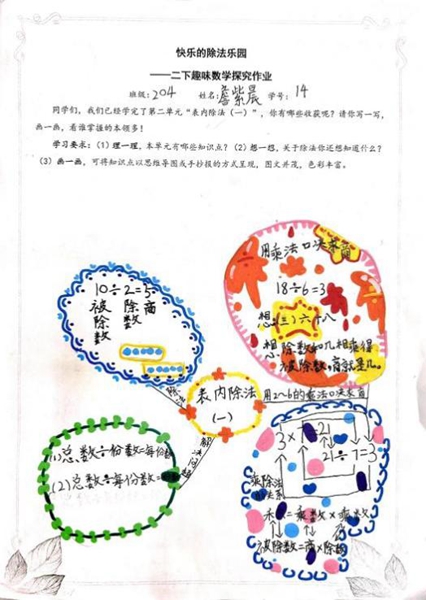 快乐的除法乐园
——二下趣味数学探究作业
班级：204 姓名：詹紫晨 学号：14
同学们，我们已经学完了第二单元“表内除法（一）”，你有哪些收获呢？请你写一写，
画一画，看谁掌握的本领多！
学习要求：（1）理一理，本单元有哪些知识点？（2）想一想，关于除法你还想知道什么？
（3）画一画，可将知识点以思维导图或手抄报的方式呈现，图文并茂，色彩丰富。
10÷2=5
被除数
除数
商
用乘法口诀求商
18÷6=3
想（三）六十八
想：除数和几相乘得
被除数，商就是几。
用2~6的乘法口诀求商
表内除法
（一）
解决问题
（1）总数÷份数=每份数
（2）总数÷每份数=
3×7=21
21÷7=3
乘除法
的关系
=乘数×乘数
被除数=商×除数